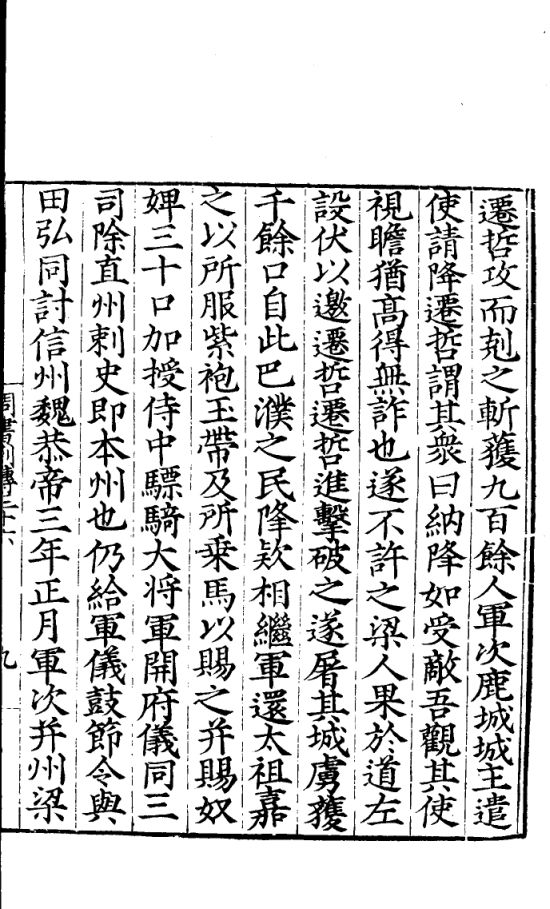 遷哲攻而剋之斬獲九百餘人軍次鹿城城主遣
使請降遷哲謂其衆曰納降如受敵吾觀其使
視瞻猶髙得無詐也遂不許之梁人果於道左
設伏以邀遷哲遷哲進擊破之遂屠其城虜獲
千餘口自此巴濮之民降欵相繼軍還太祖嘉
之以所服紫袍玉帶及所乗馬以賜之并賜奴
婢三十口加授侍中驃騎大将軍開府儀同三
司除直州刺史即本州也仍給軍儀鼓節令與
田弘同討信州魏恭帝三年正月軍次并州梁
九